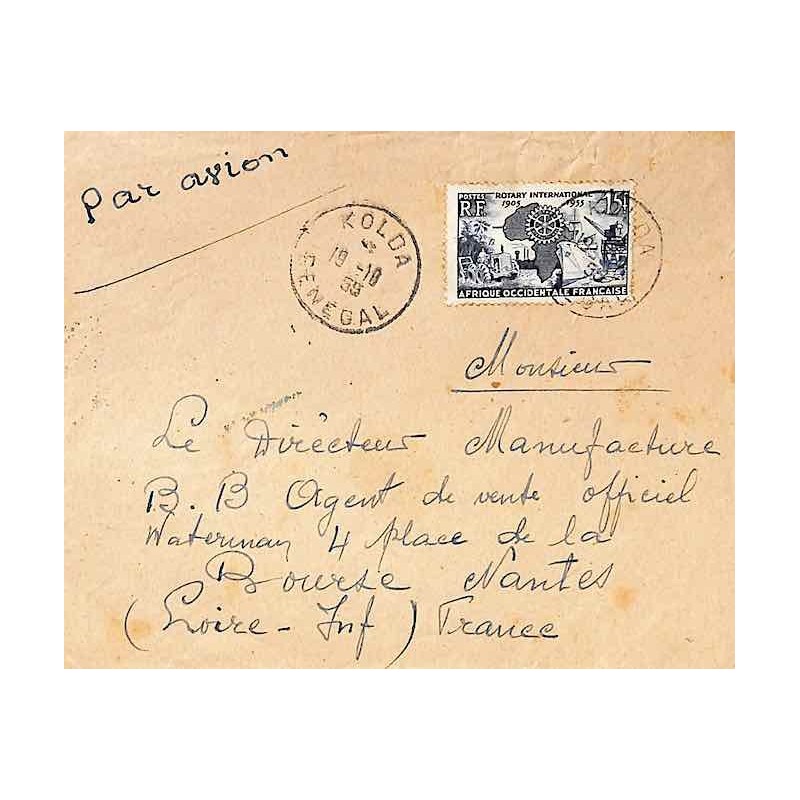 Par avion
KOLDA
19-10
SENÉGAL
POSTES
R.F.
ROTARY INTERNATIONAL
1905 1955
15F
AFRIQUE OCCIDENTALE FRANÇAISE
Monsieur
Le Dirécteur Manufacture
B.B Agent de vente officiel
Waterman 4 place de la
Bourse Nantes
(Loire-Inf) France